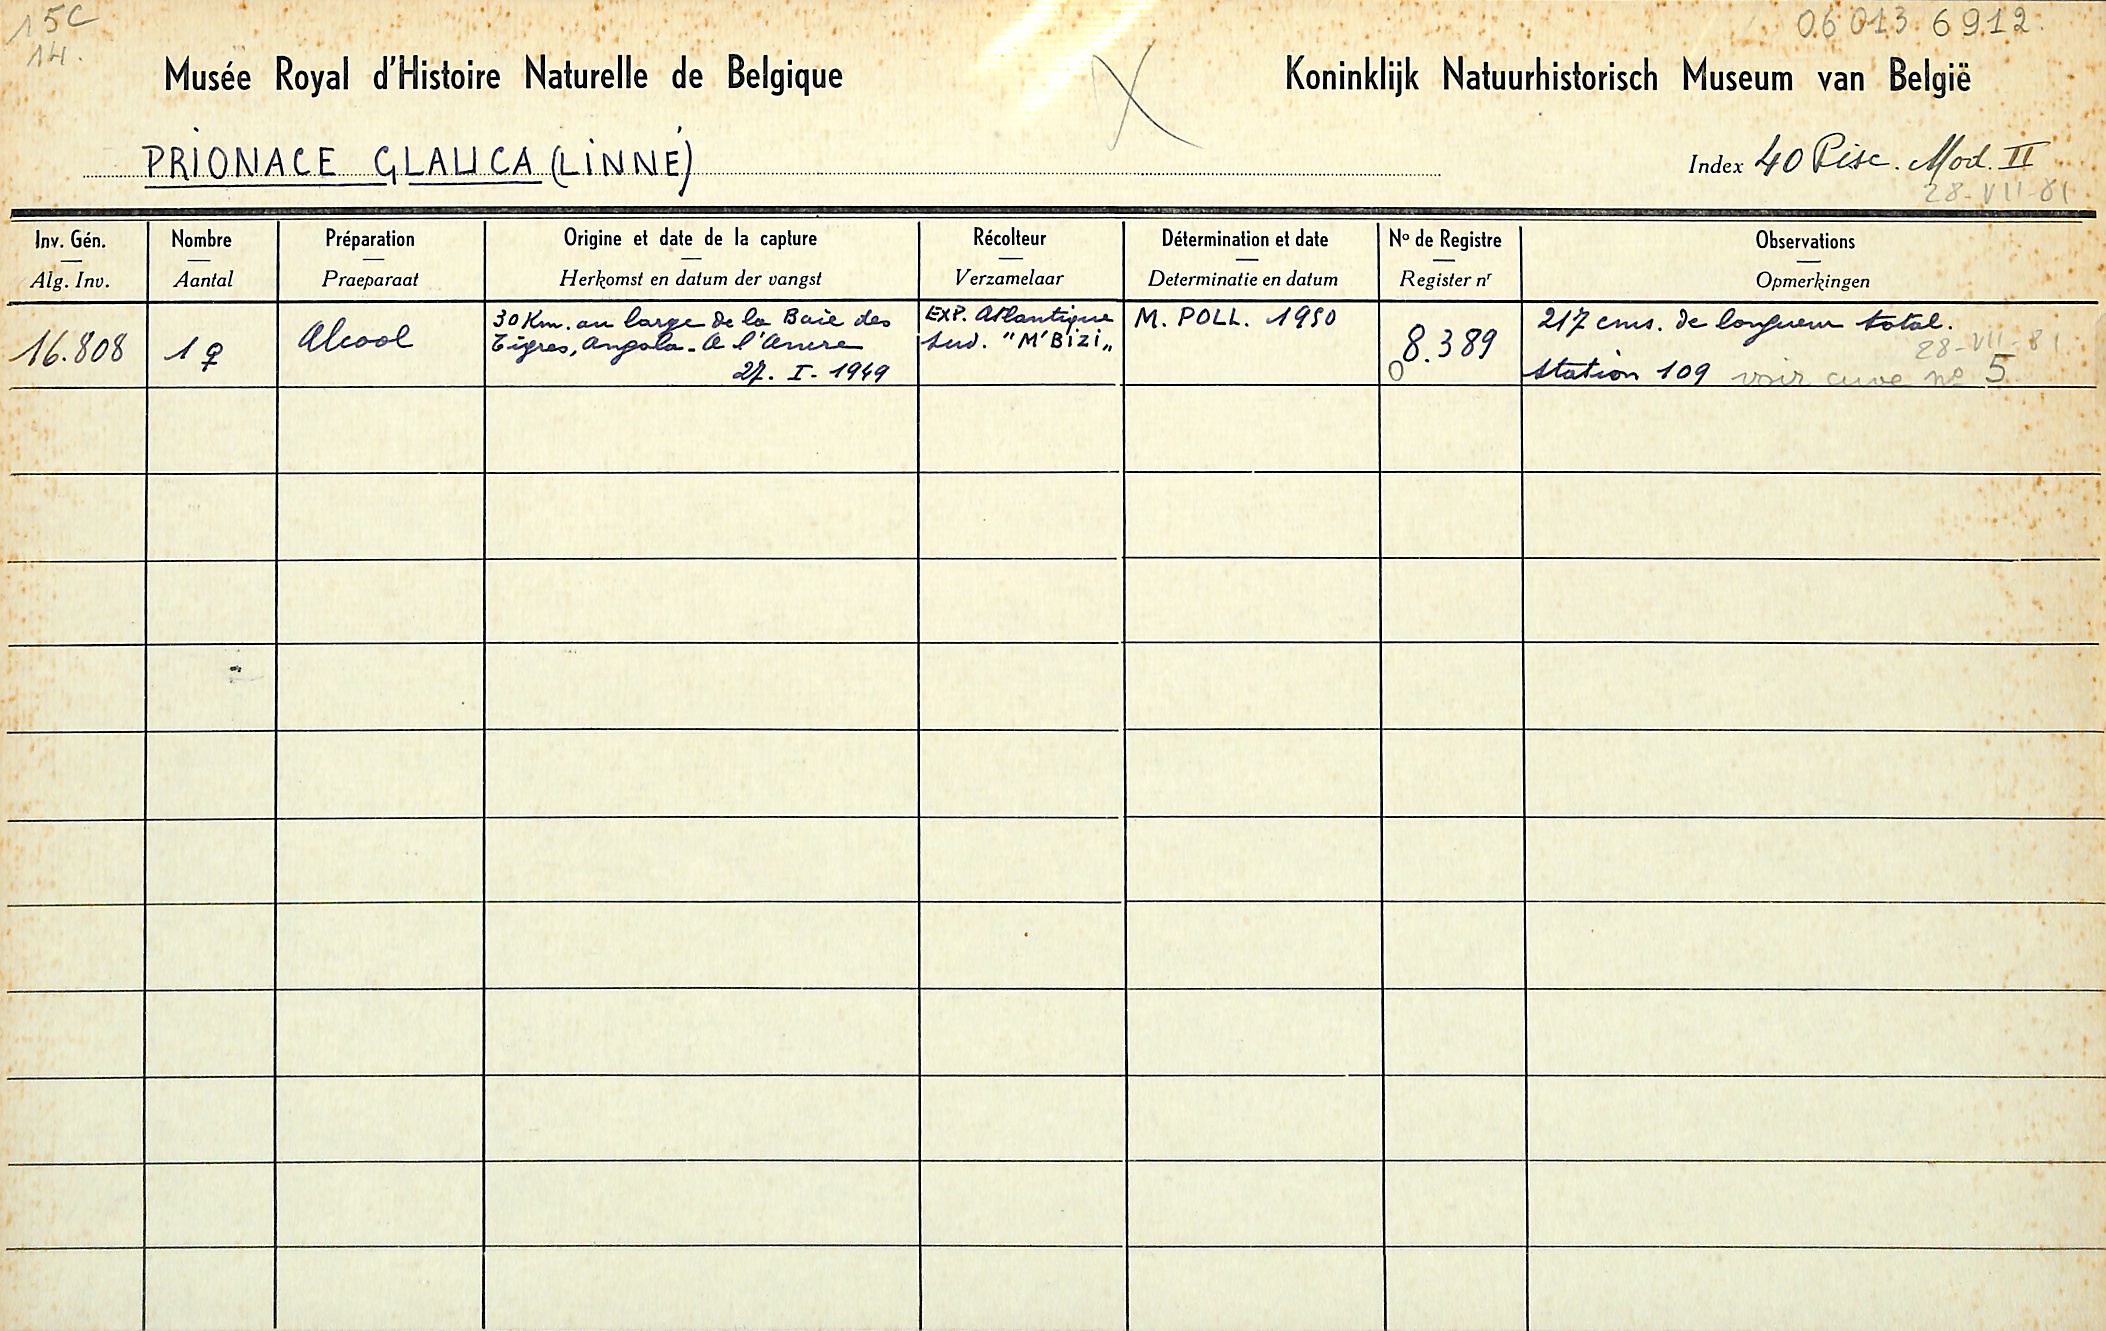 15C
14.
06 013 6912.
Musée Royal d'Histoire Naturelle de Belgique
Koninklijk Natuurhistorisch Museum van België
PRIONACE GLAUCA (LINNÉ)
Index 40 Pisc. Mod. II
28-VII-81
Inv. Gén.
Alg. Inv.
Nombre
Aantal
Préparation
Praeparaat
Origine et date de la capture
Herkomst en datum der vangst
Récolteur
Verzamelaar
Détermination et date
Determinatie en datum
No de Registre
Register nr
Observations
Opmerkingen
16.808
1 ♀
Alcool
30 Km. au large de la Baie des
Tigres, Angola. A l'Ancre
27. I. 1949
EXP. Atlantique
Sud. "M'Bizi"
M. POLL. 1950
8.389
O
217 cms. de longueur total.
28-VII-81
Station 109 voir cuve no 5